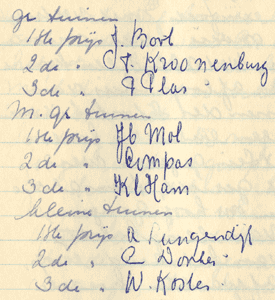 gr tuinen
1ste prijs J. Bort
2de " J. Kroonenburg
3de " P Plas
M. gr tuinen
1ste prijs Jb Mol
2de " Compas
3de " Kl Ham
kleine tuinen
1ste prijs Langendijk
2de " C
3de " W. Koster